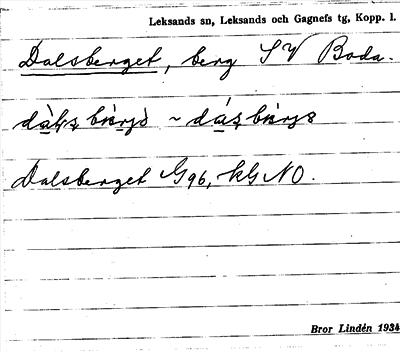 Leksands sn, Leksands och Gagnefs tg, Kopp. l.
Dalsberget, berg SV Boda.
Dalsberget G96, kG NO.
Bror Lindén 1934